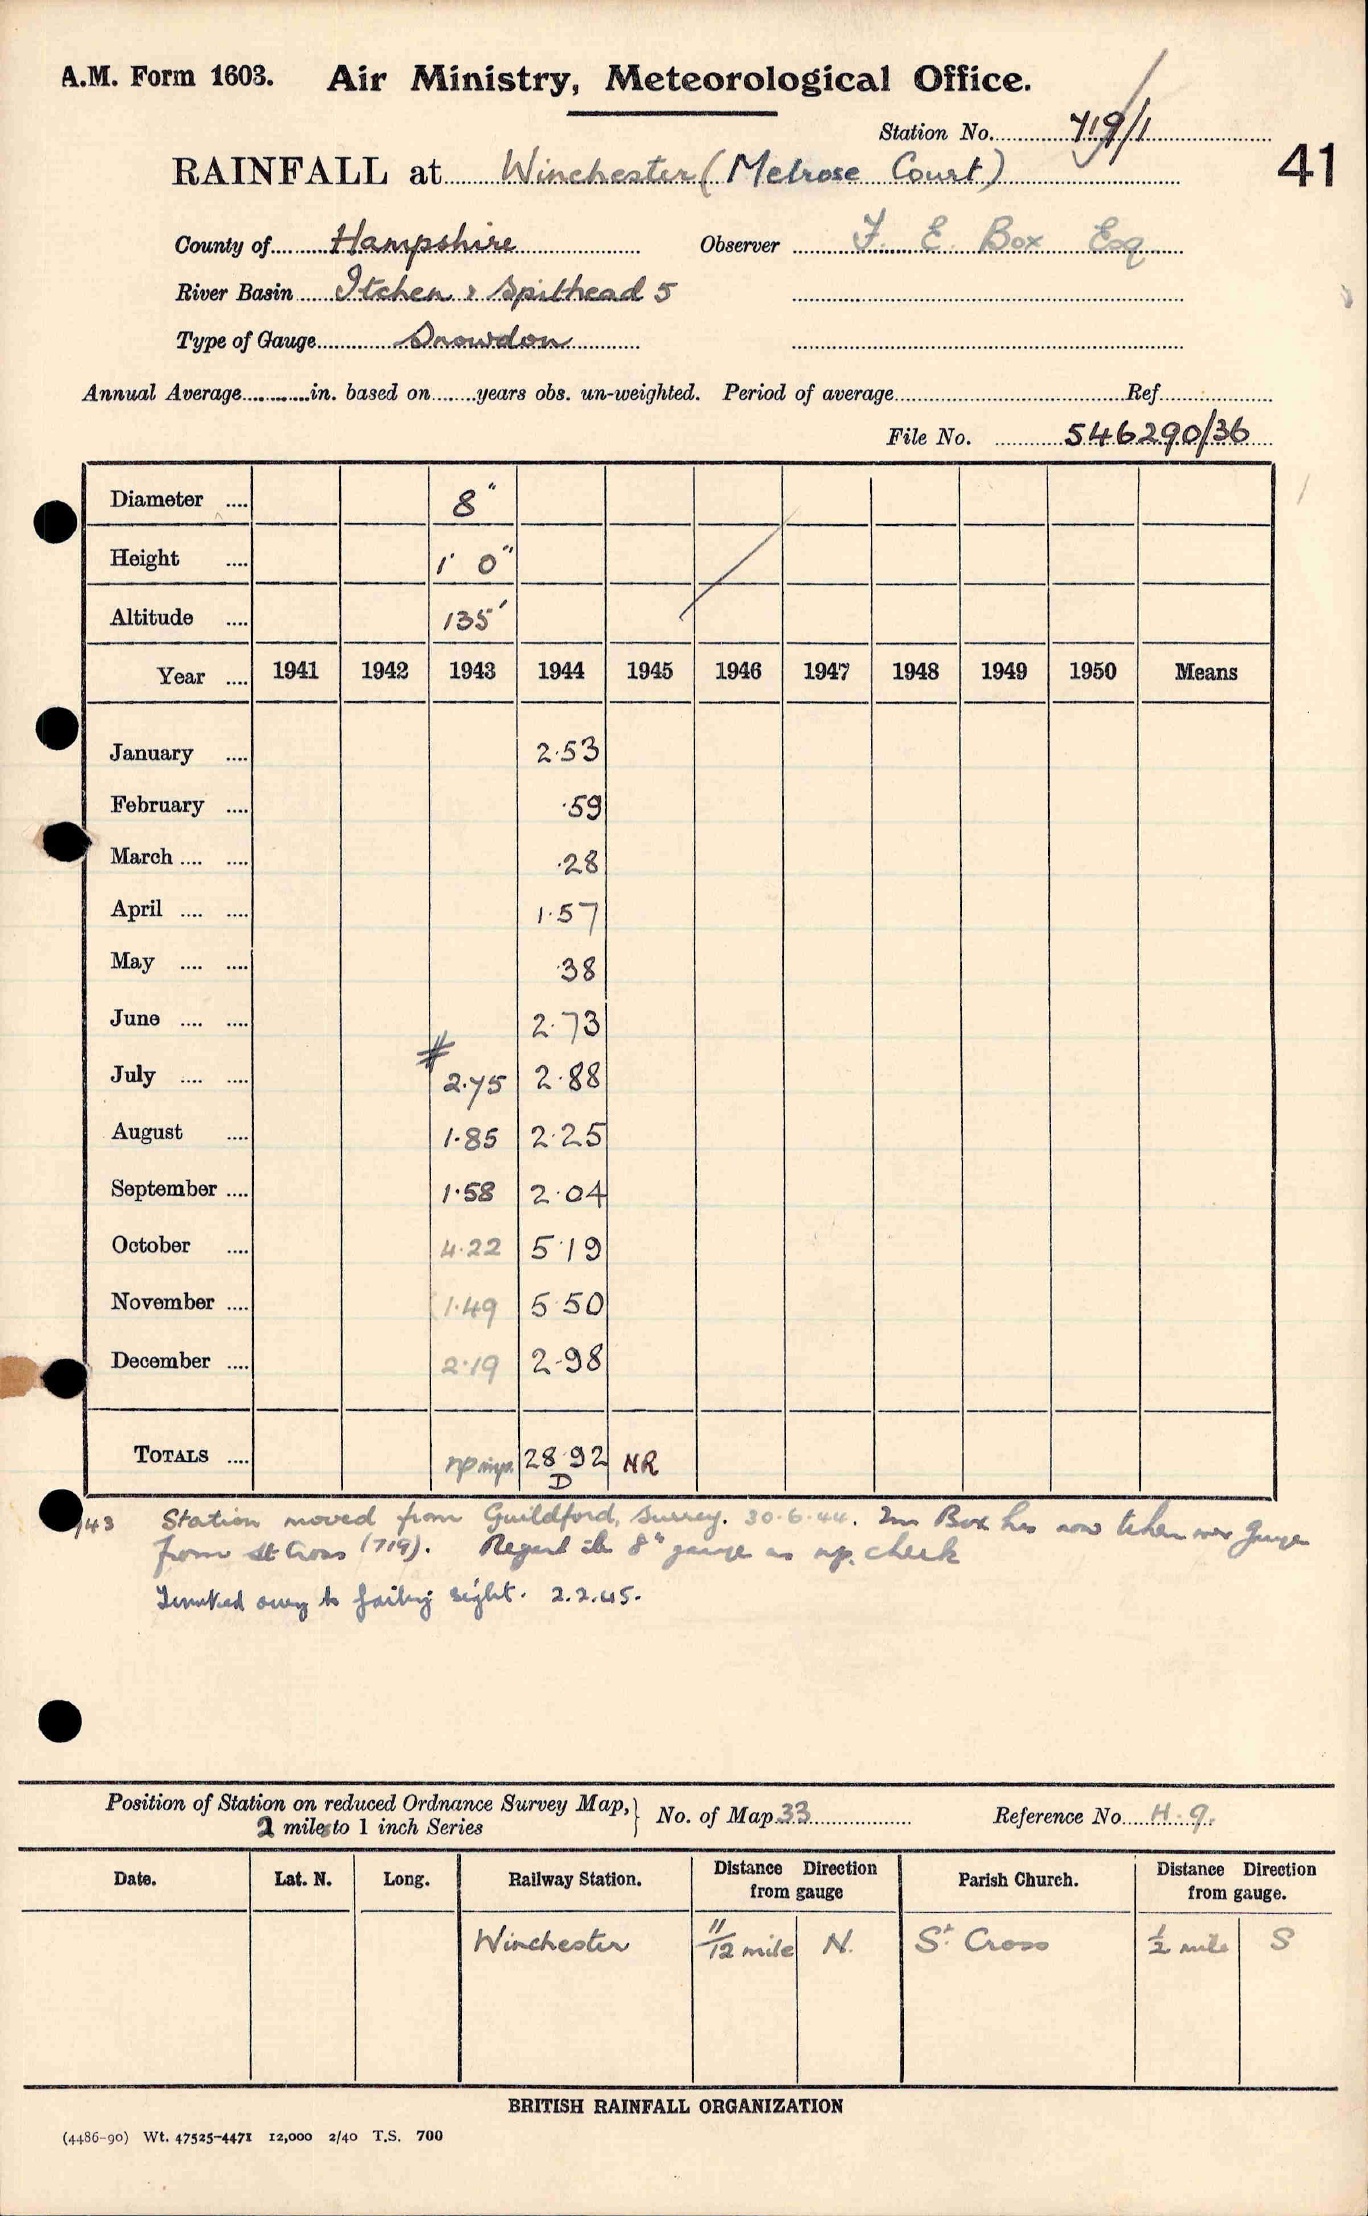 A.M. Form 1603. Air Ministry, Meteorological Office.
Station No. 719/1
41
RAINFALL at Winchester (Melrose Court)
County of Hampshire Observer F. E. Box Esq
River Basin Itchen & Spithead 5
Type of Gauge Snowdon
Annual Average in. based on years obs. un-weighted. Period of average Ref
File No. 546290/36
Diameter 8"
Height 1' 0"
Altitude 135'
Year 1941 1942 1943 1944 1945 1946 1947 1948 1949 1950 Means
January 2.53
February .59
March .28
April 1.57
May .38
June 2.73
July # 2.75 2.88
August 1.85 2.25
September 1.58 2.04
October 4.22 5.19
November 1.49 5.50
December 2.19 2.98
TOTALS 28.92 NR
D
/43 Station moved from Guildford, Surrey. 30.6.44. Mr Box has now taken over gauge
from St Cross (719). Regard 8" gauge as check
owing to failing sight. 2.2.45.
Position of Station on reduced Ordnance Survey Map, No. of Map 33 Reference No. H.9.
2 miles to 1 inch Series
Date. Lat. N. Long. Railway Station. Distance Direction from gauge Parish Church. Distance Direction from gauge.
Winchester 11/12 mile N. St Cross 1/2 mile S
BRITISH RAINFALL ORGANIZATION
(4486-90) Wt. 47525-4471 12,000 2/40 T.S. 700